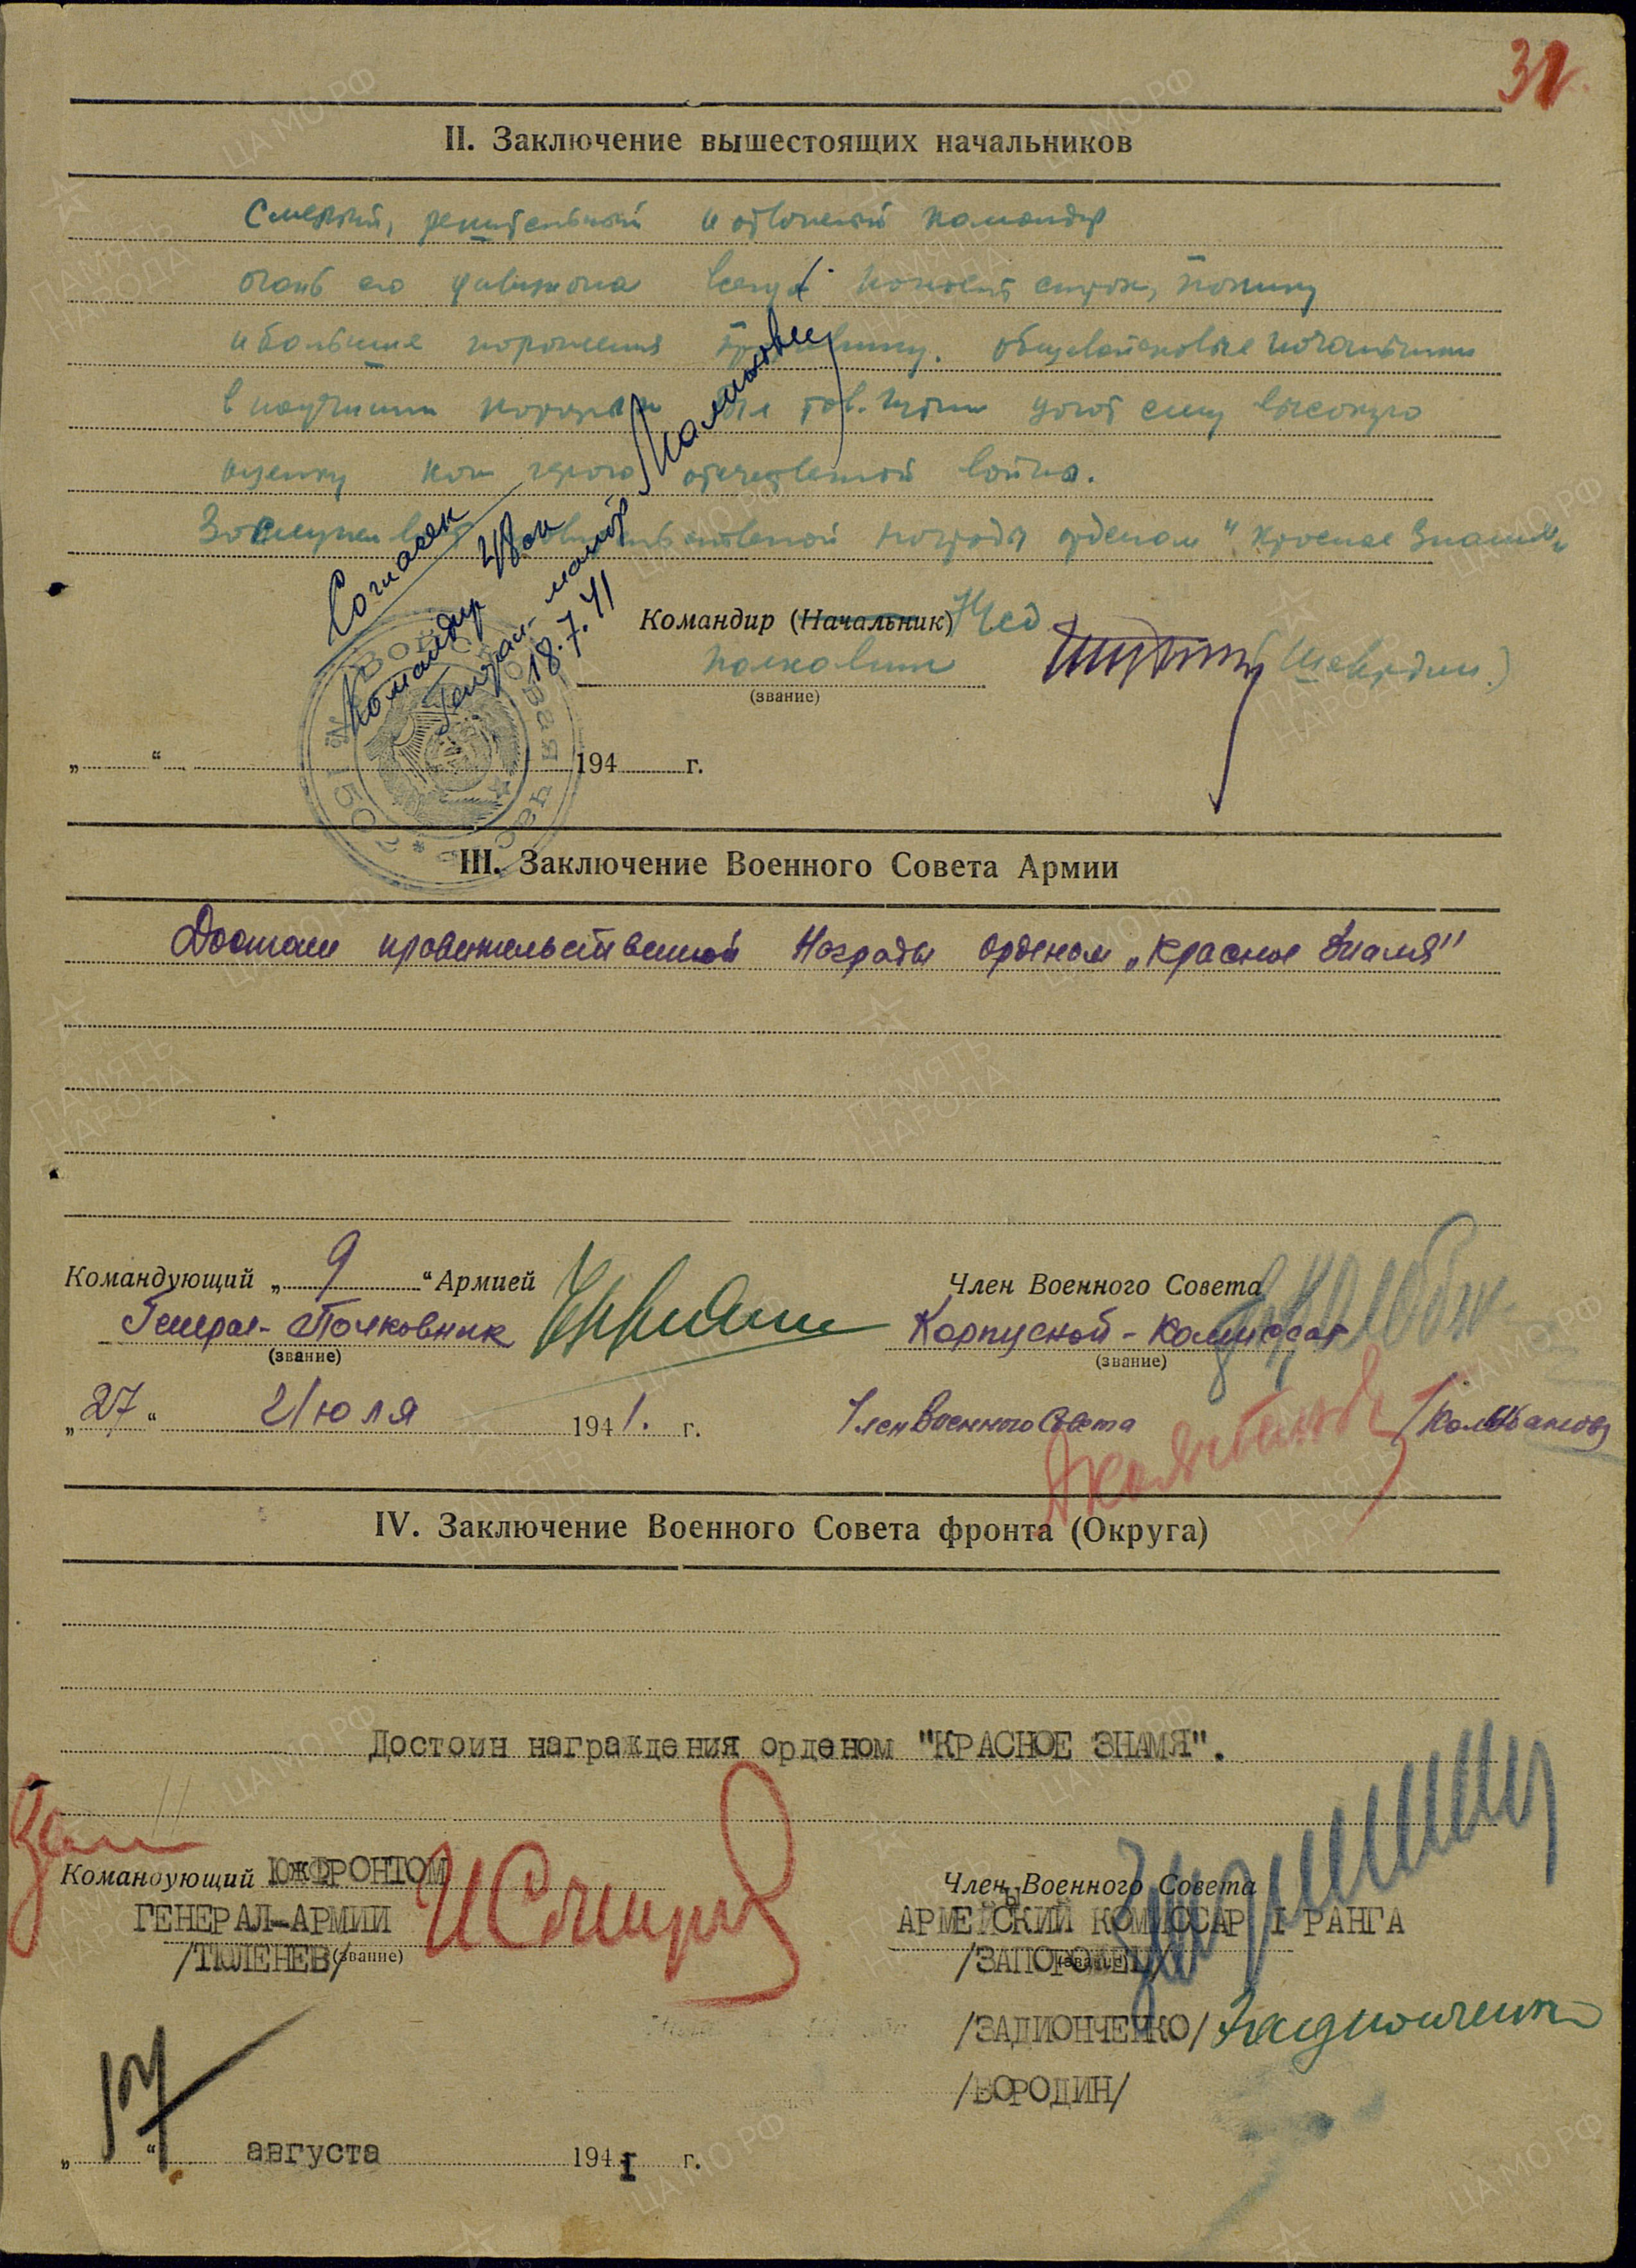 31
II. Заключение вышестоящих начальников
Смелый, решительный и отважный командир
огонь его дивизиона всегда наносит страх, панику
и большие поражения противнику. общевойсковые начальники
тов. дают ему высокую
оценку как героя отечественной войны.
Заслуживает правительственной награды орденом "Красное Знамя"
Согласен
Командир 48 ск
Генерал-майор Малиновский
18.7.41
Командир (Начальник)
полковник
(звание)
„ “ 194 г.
III. Заключение Военного Совета Армии
Достоин правительственной Награды орденом „Красное Знамя"
Командующий „9“ Армией
Член Военного Совета
Генерал-Полковник
Корпусной-комиссар
(звание)
(звание)
„27“ Июля 1941. г.
Член Военного Совета
/Колыбанов/
IV. Заключение Военного Совета фронта (Округа)
Достоин награждения орденом "КРАСНОЕ ЗНАМЯ".
Командующий ЮжФРОНТОМ
Члены Военного Совета
ГЕНЕРАЛ-АРМИИ
АРМЕЙСКИЙ КОМИССАР I РАНГА
/ТЮЛЕНЕВ/
(звание)
/ЗАПОРОЖЕЦ/
(звание)
/ЗАДИОНЧЕНКО/ Задионченко
/БОРОДИН/
„17“ августа 194I г.